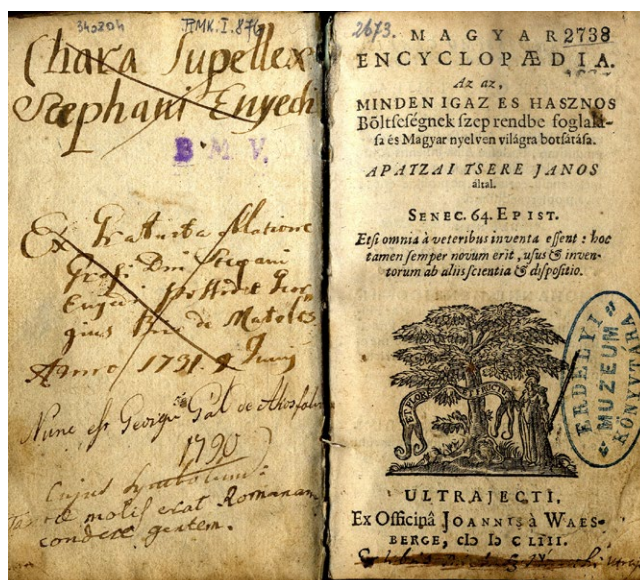 340204
RMK. I. 876
Chara Supellex
Stephani Enyedi
B. M. V.
Ex Gratuita
Enyedi Possidet Geor
gius
Anno 1731. 9 Junij
Nunc est Georgii Gál de
1790
Cujus Symbolum:
Tantæ molis erat Romanam
condere gentem.
2673.
MAGYAR 2738
ENCYCLOPÆDIA.
Az az,
MINDEN IGAZ ES HASZNOS
Bőltseségnek szep rendbe foglalá-
sa és Magyar nyelven világra botsatása.
APATZAI TSERE JANOS
által.
SENEC. 64. EPIST.
Etsi omnia à veteribus inventa essent : hoc
tamen semper novum erit, usus & inven-
torum ab aliis scientia & dispositio.
ERDÉLYI
MUZEUM
KÖNYVTÁRA
ULTRAJECTI,
Ex Officinâ JOANNIS à WAES-
BERGE, cIɔ Iɔ C LIII.